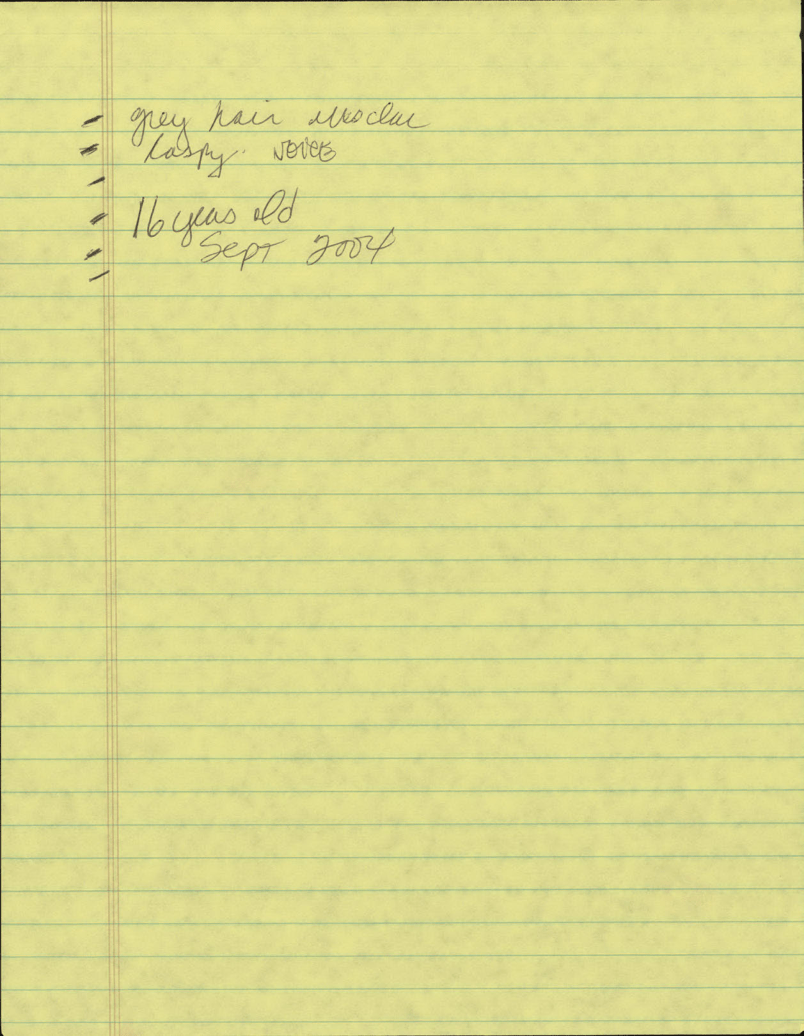 grey hair
raspy. voice
16 years old
Sept 2004